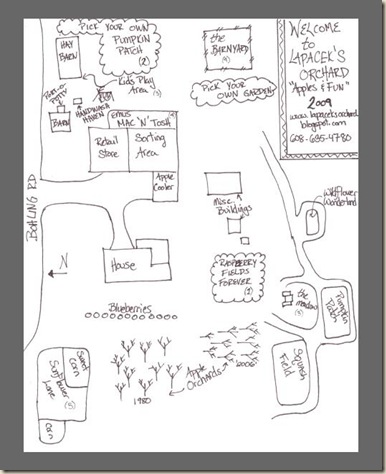 PICK YOUR OWN
PUMPKIN
PATCH
(2)
HAY
BARN
Kids Play
Area
(3)
PORT-O-
POTTY
HANDWASH
HAVEN
BARN
the
BARNYARD
(4)
PICK YOUR
OWN GARDEN
WELCOME
to
LAPACEK'S
ORCHARD
"Apples & FUN"
2009
www.lapaceksorchard.
blogspot.com
608-635-4780
EMUS
MAC 'N' TOSH
Retail
Store
Sorting
Area
Apple
Cooler
BOHLING RD
Misc.
Buildings
Wildflower
Wonderland
N
House
RASPBERRY
FIELDS
FOREVER
(1)
the
meadow
Pumpkin
Patch
Blueberries
Squash
Field
Sweet
Corn
Sunflower
Lane
(5)
Corn
1980
Apple
Orchards
2006